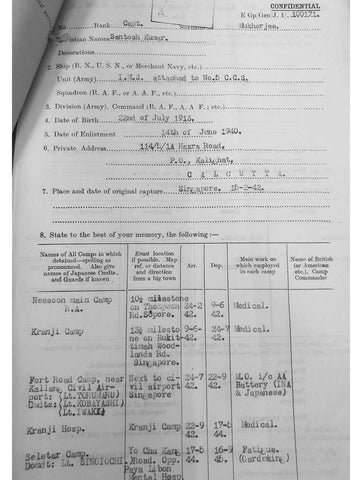 CONFIDENTIAL
E Gp/Gen(J.1)/ 100171.
A
No. Rank Capt. Mukherjee.
Christian Names Santosh Kumar.
Decorations
2. Ship (R. N., U. S. N., or Merchant Navy, etc.)
Unit (Army). I.M.S. attached to No.5 C.C.S.
Squadron (R. A. F., or A. A. F., etc.)
3. Division (Army). Command (R. A. F., A. A. F.; etc.)
4. Date of Birth 22nd of July 1913.
5. Date of Enlistment 14th of June 1940.
6. Private Address 114/1/1A Hazra Road,
P.O., Kalighat,
C A L C U T T A .
7. Place and date of original capture Singapore. 15-2-42.
8. State to the best of your memory, the following:—
Names of All Camps in which detained—spelling as pronounced. Also give names of Japanese Cmdts. and Guards if known
Exact location if possible. Map ref. or distance and direction from a big town
Arr.
Dep.
Main work on which employed in each camp
Name of British (or American etc.), Camp Commander
Neesoon main Camp R.A.
10½ milestone on Thompson Rd. S'pore.
24-2 42.
9-6 42.
Medical.
Kranji Camp
13½ milestone on Bukit-timah Woodlands Rd. Singapore.
9-6- 42.
24-7 42.
Medical.
Fort Road Camp, near Kallang Civil Airport: (Lt. TOKUMARU) Cmdts: (Lt. KOBAYASHI) (Lt. IWAKI)
Next to civil airport Singapore
24-7 42.
22-9 42.
M.O. i/c AA Battery (INA & Japanese)
Kranji Hosp.
Kranji Camp
22-9 42.
17-5 44.
Medical.
Seletar Camp.
Yo Chu Kang Road. Opp. Paya Libon Mental Hosp.
17-5 44.
16-9 45.
Fatigue. (Gardening)